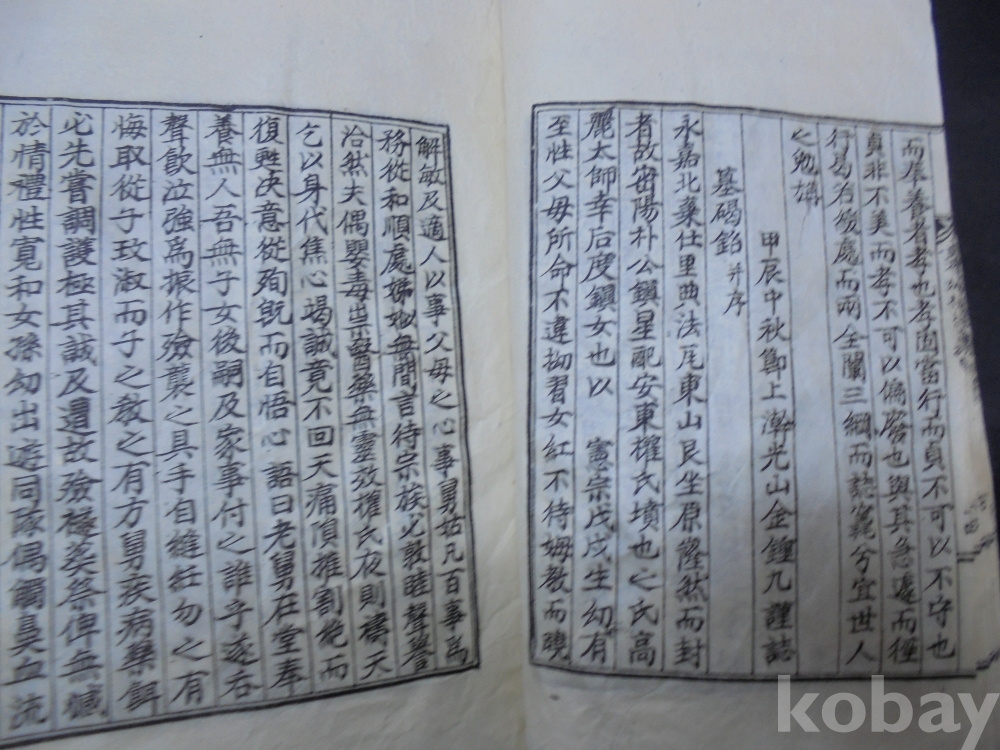 而奉養者孝也孝固當行而貞不可以不守也
貞非不美而孝不可以偏廢也與其急遽而徑
行曷若後處而兩全闡三綱而誌襄兮宜世人
之勉搆
甲辰中秋鄭上澣光山金鍾九謹誌
墓碣銘 并序
永嘉北棄仕里曲法尾東山艮坐原隆然而封
者故密陽朴公鎭星配安東權氏墳也之氏高
麗太師幸后度鎭女也以 憲宗戊戌生幼有
至性父母所命不違拗習女紅不待姆教而曉
解敏及適人以事父母之心事舅姑凡百事爲
務從和順處娣姒無間言待宗族必敦睦聲譽
洽然夫偶嬰毒祟醫藥無靈效權氏夜則禱天
乞以身代焦心竭誠竟不回天痛頂摧割絶而
復甦決意從殉旣而自悟心語曰老舅在堂奉
養無人吾無子女後嗣及家事付之誰乎遂吞
聲飮泣強爲振作殮襲之具手自縫紝勿之有
悔取從子玫淑而子之敎之有方舅疾病藥餌
必先嘗調護極其誠及遭故殮殯葬祭俾無憾
於情禮性寛和女孫幼出遊同隊偶觸鼻血流
kobay